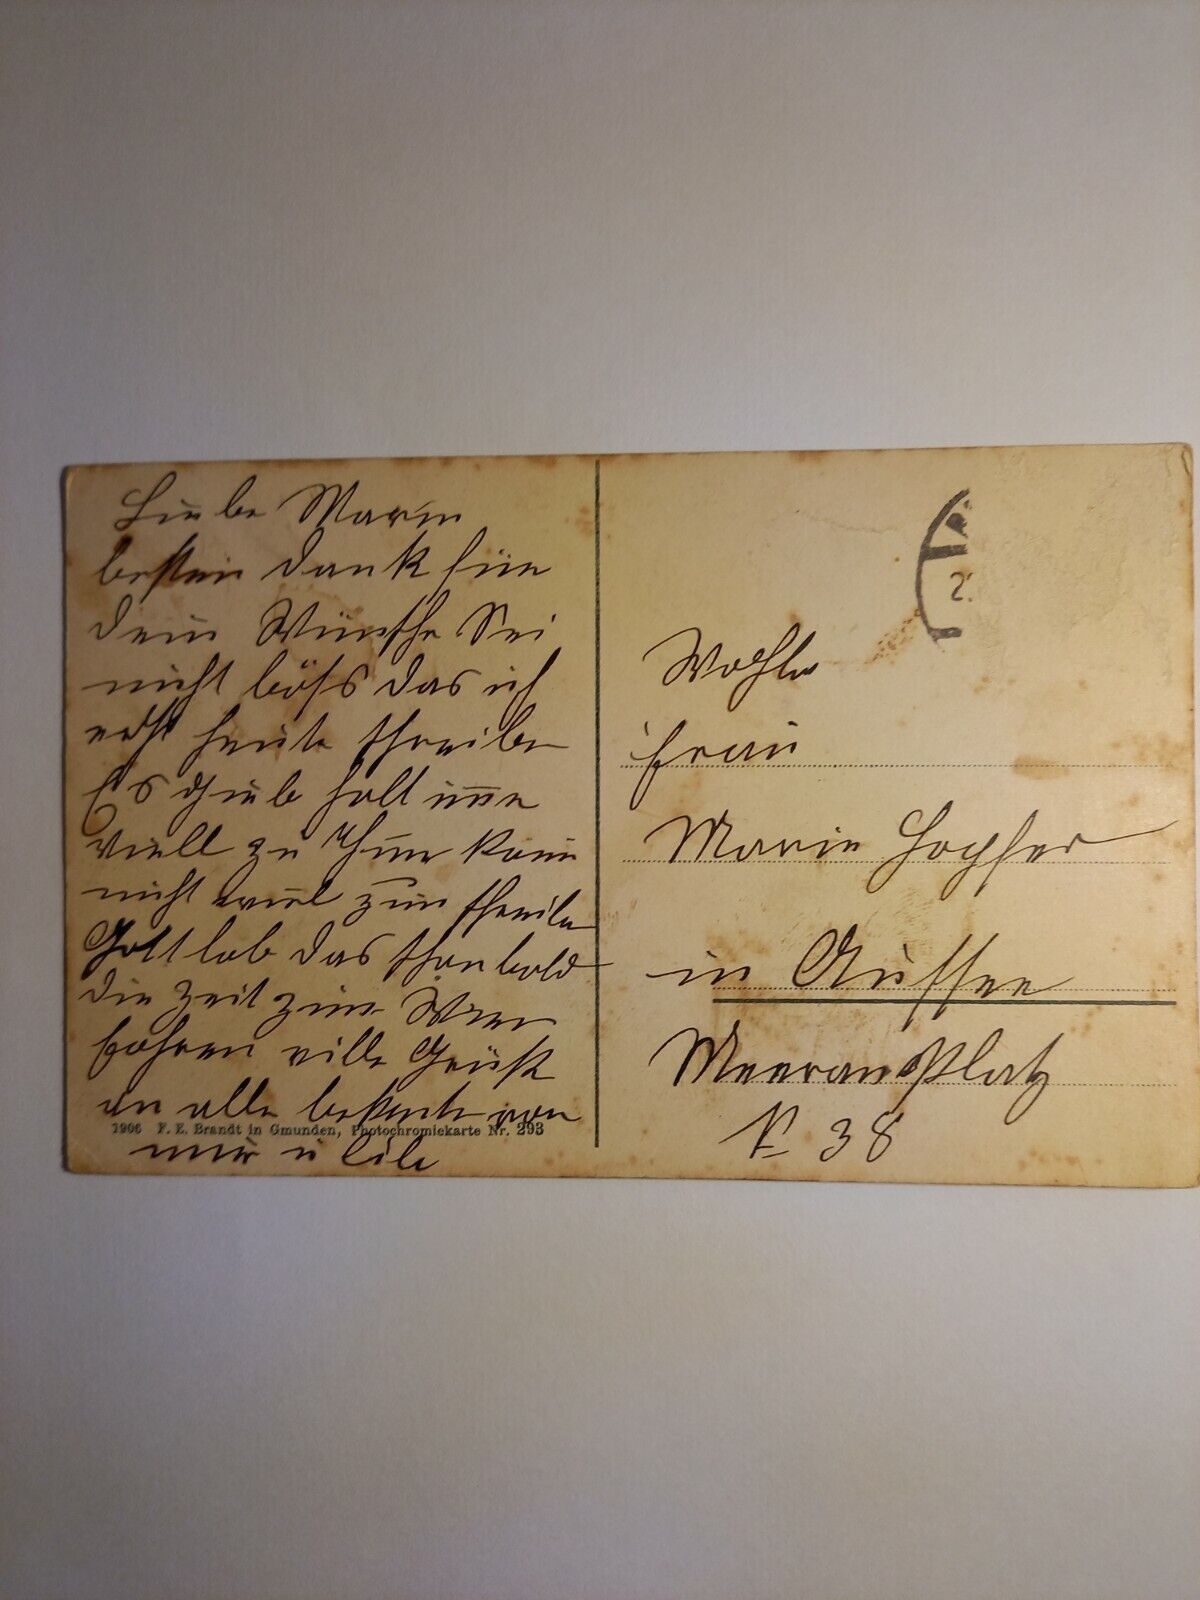 Liebe Marie
besten Dank für
dein Wünsche Sei
nicht böss das ich
erst heute schreibe
Es gieb halt ime
viell zu Thun kann
nicht viel zum schreibe
Gott lob das schon bald
die Zeit zum
fahren ville Grüße
an alle bekante von
mir u Lili
1906 F. E. Brandt in Gmunden, Photochromiekarte Nr. 293
2
Wohlg
Frau
Marie
in Aussee
Meeran Platz
N 38